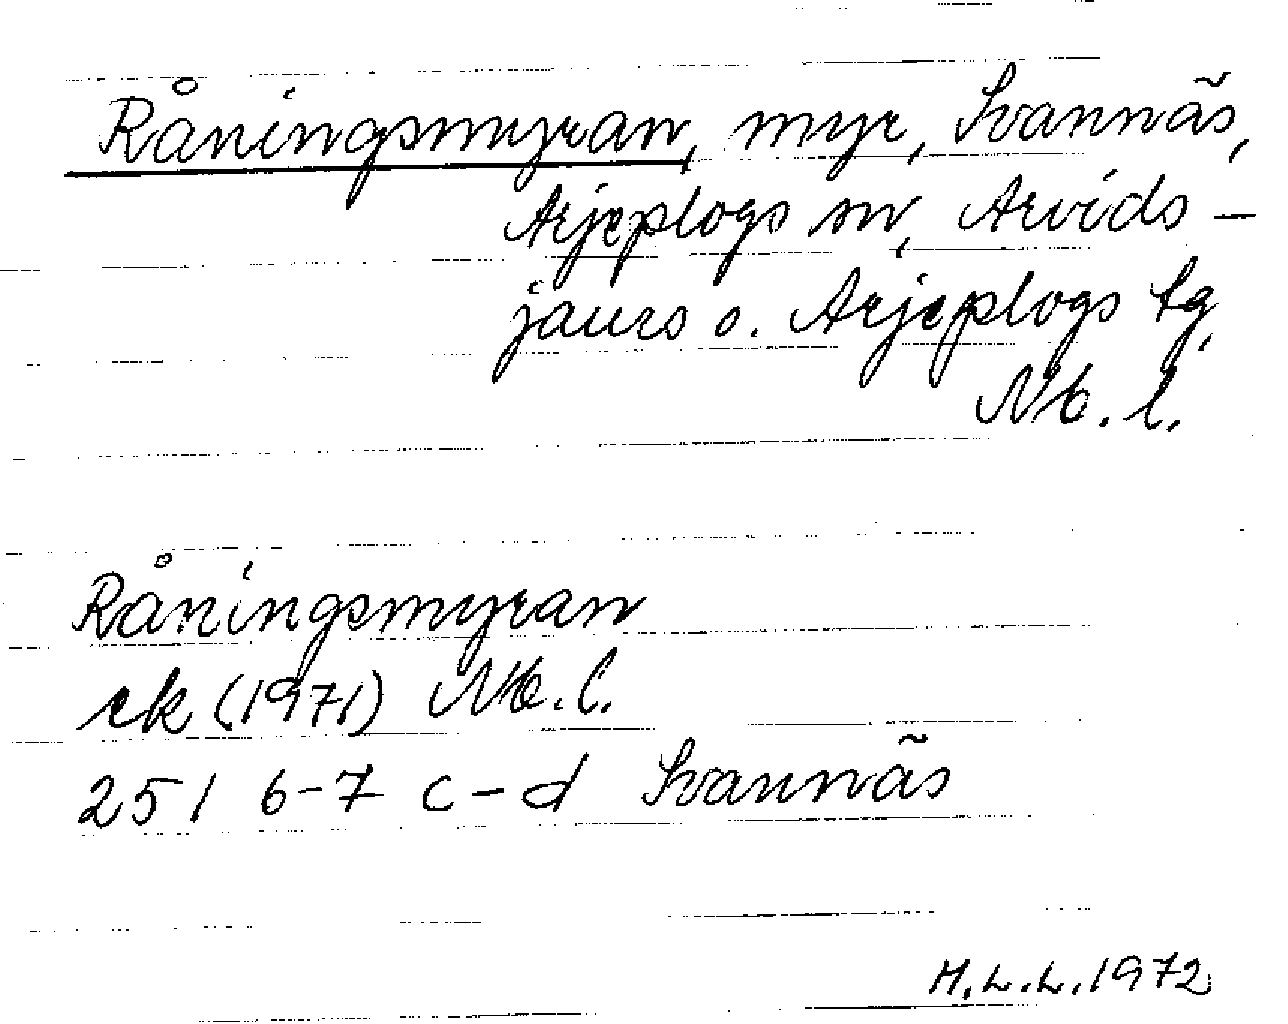 Råningsmyran, myr, Svannäs,
Arjeplogs sn, Arvids-
jaurs o. Arjeplogs tg,
Nb. l.
Råningsmyran
ek (1971) Nb. l.
251 6-7 c-d Svannäs
H.L.L. 1972